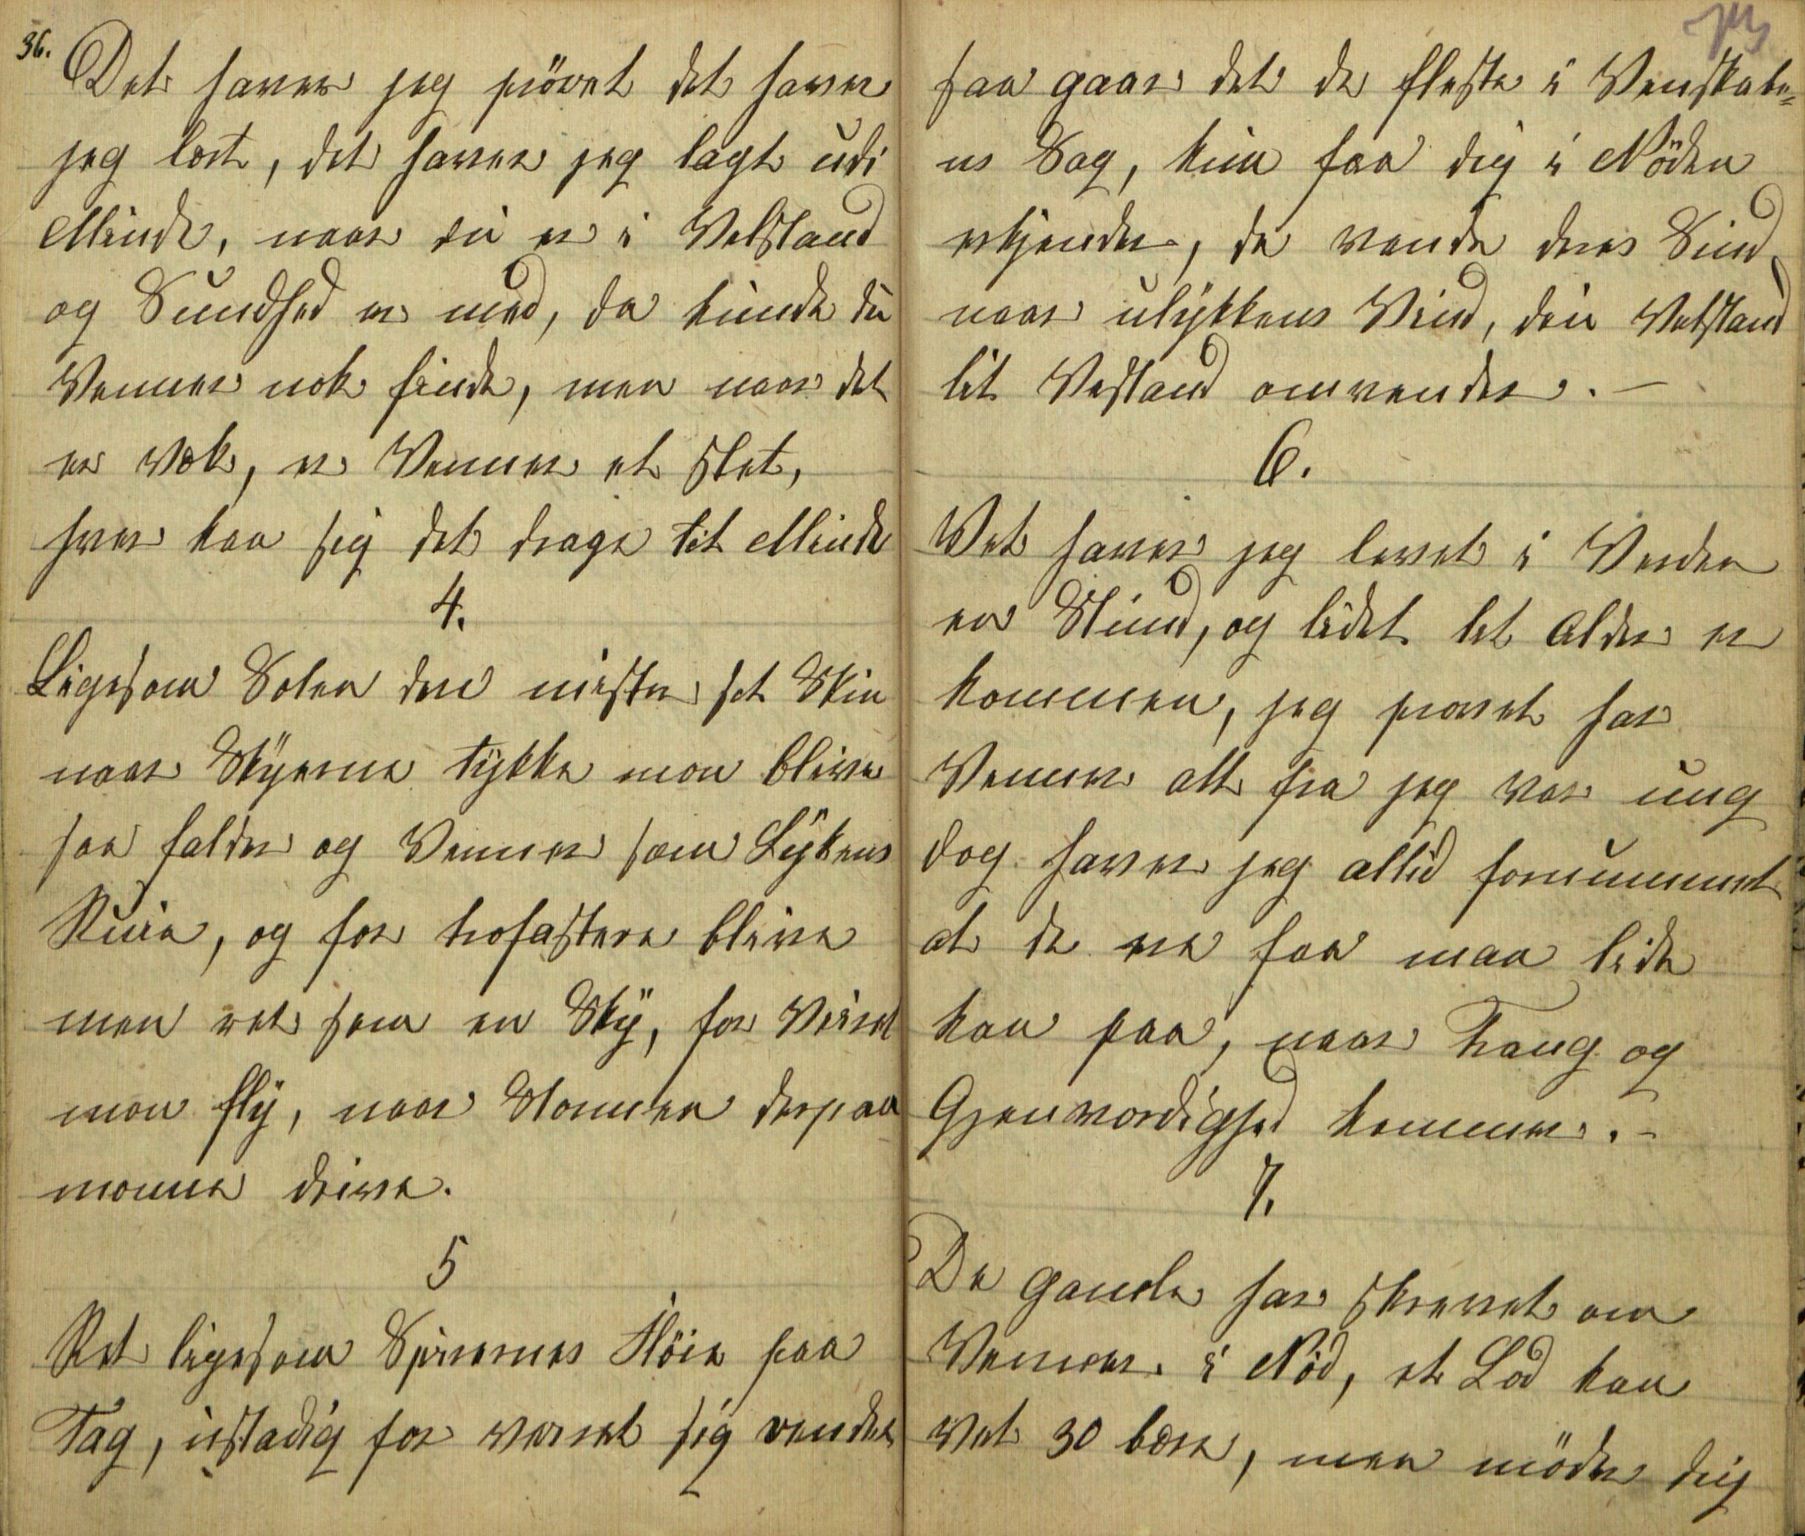 36.
Det haver jeg prövet det haver
jeg lært, det haver jeg lagt udi
Minde, naar du er i Velstand
og Sundhed er med, da kunde du
Venner nok finde, men naar det
er væk, er Venner et slet,
hver kan sig det drage tit Minde
4.
Ligesom Solen den mister set Skin
naar Skyerne tykke mon blive
saa falder og Venner som Lykens
Ruin, og for trofastere blive
men ret som en Sky, for Veiret
mon fly, naar Stormen derpaa
monne drive.
5
Ret ligesom Spirernes Flöie paa
Tag, ustadig for været sig vender
saa gaar det de fleste i Venskabe=
ns Sag, kun faa dig i Nöden
erkjender, de vende deres Sind,
naar ulykkens Vind, din Velstand
tit Vestand omvender. —
6.
Vel haver jeg levet i Verden
en Stund, og lidet tet Alder er
kommen, jeg prøvet har
Venner alt fra jeg var ung
dog haver jeg altid fornummet
at de ere faa man lide
kan paa, naar Trang og
Gjenvordighed kommer. -
7.
De Gamle har skrevet om
Venner i Nöd, et Lod kan
vel 30 bære, men möder dig